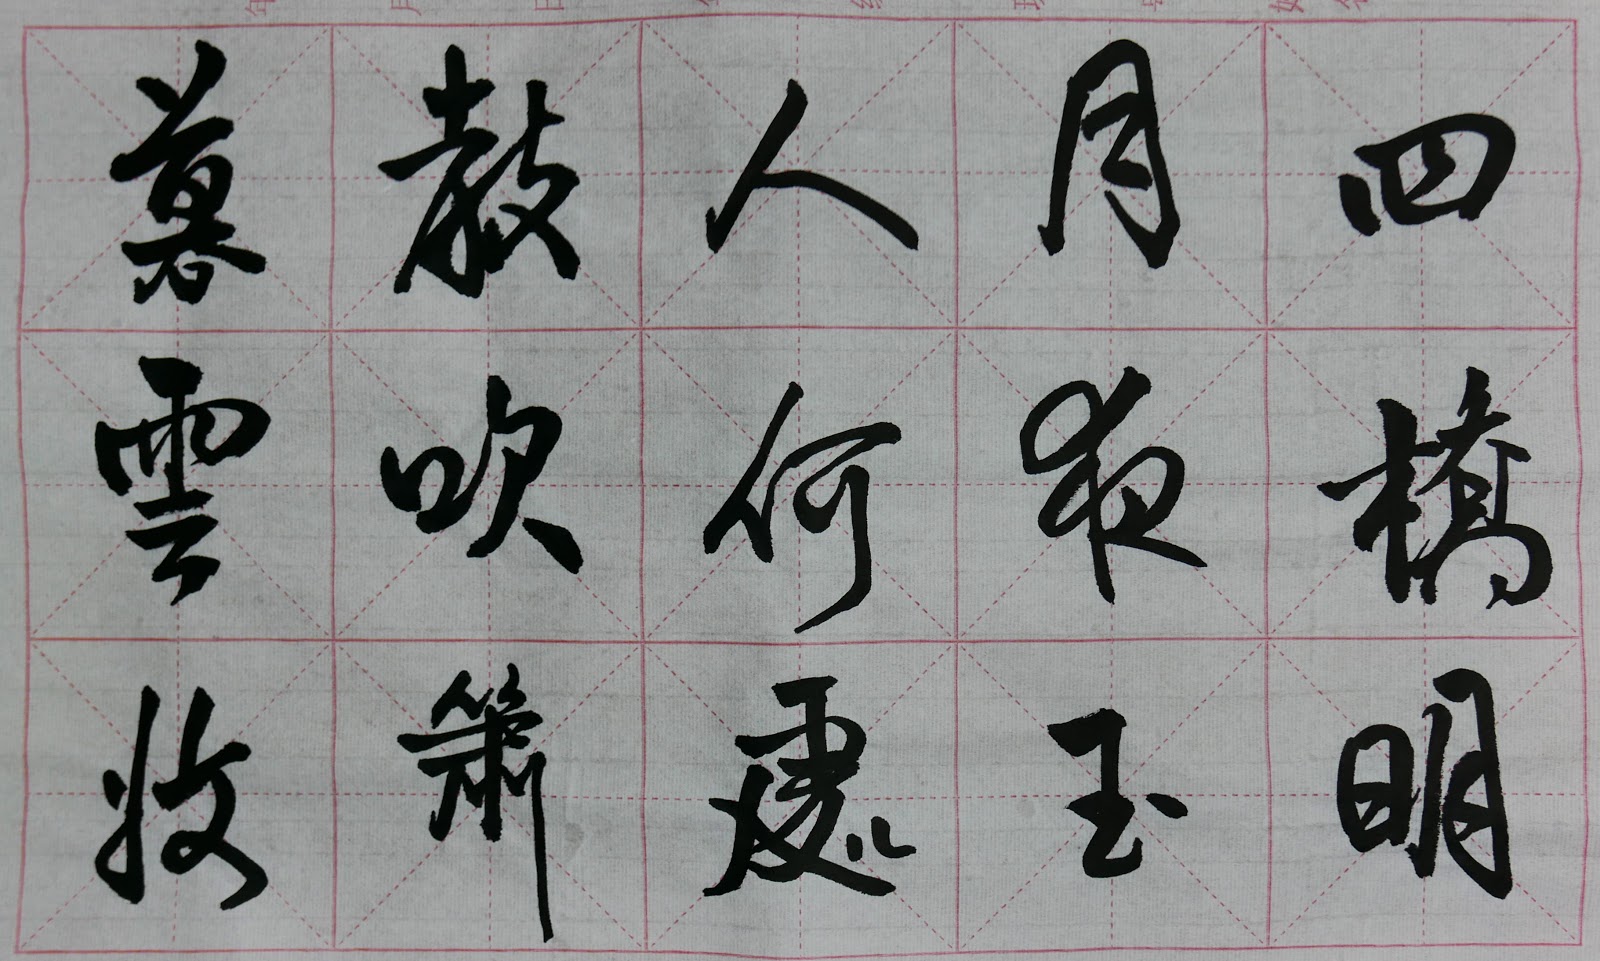 四橋明
月夜玉
人何處
教吹簫
暮雲收